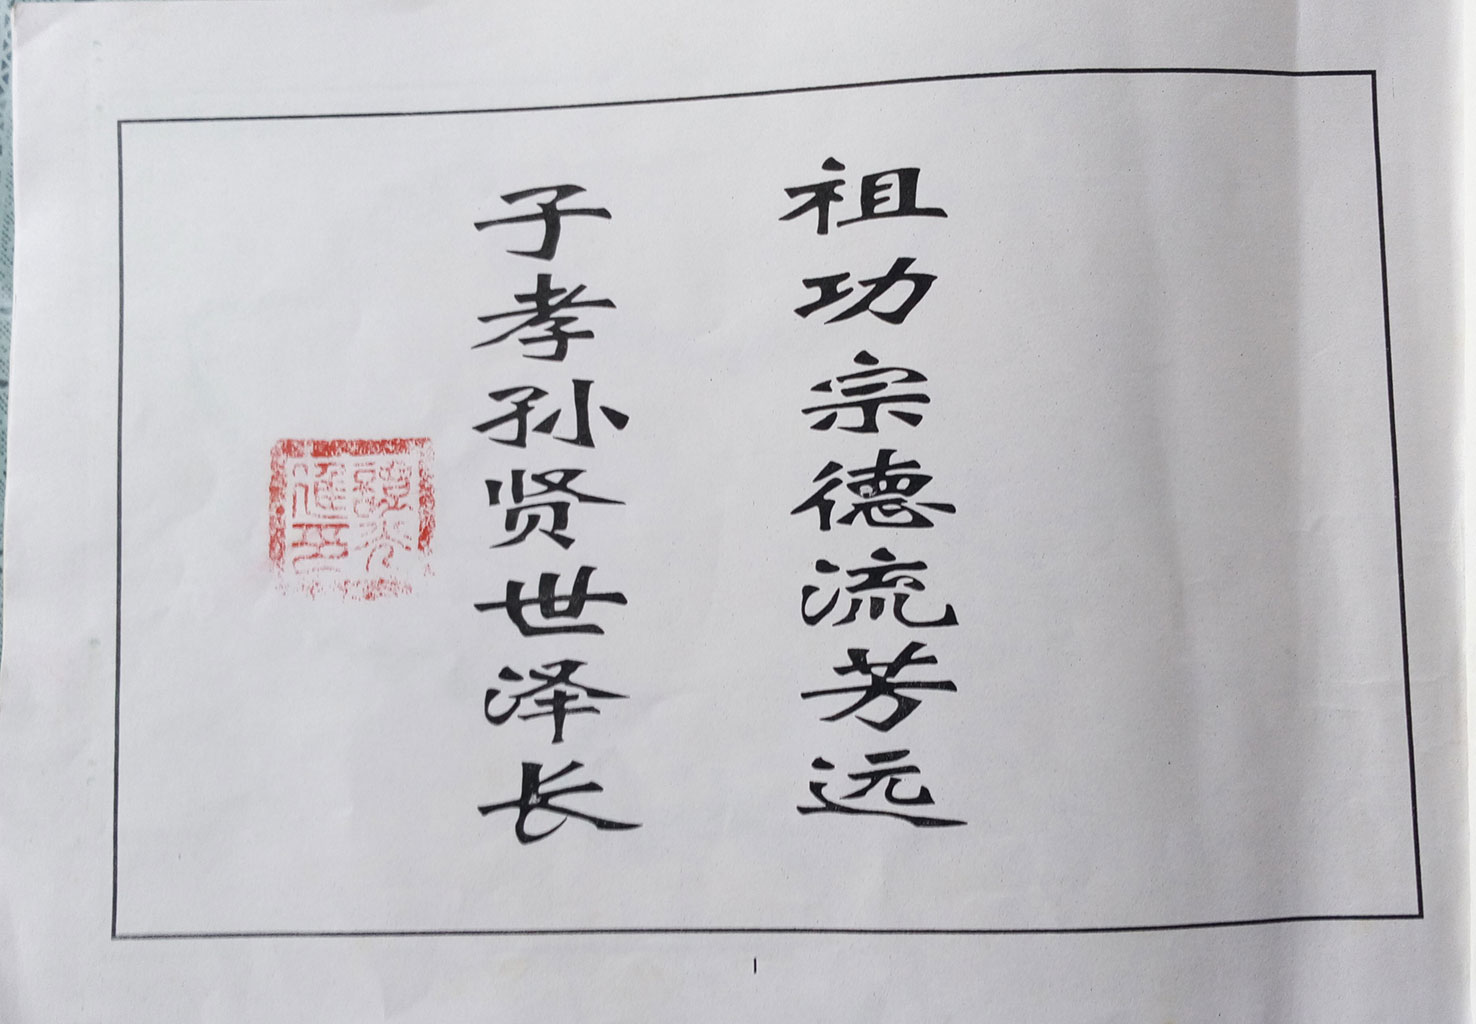 祖功宗德流芳远
子孝孙贤世泽长
1